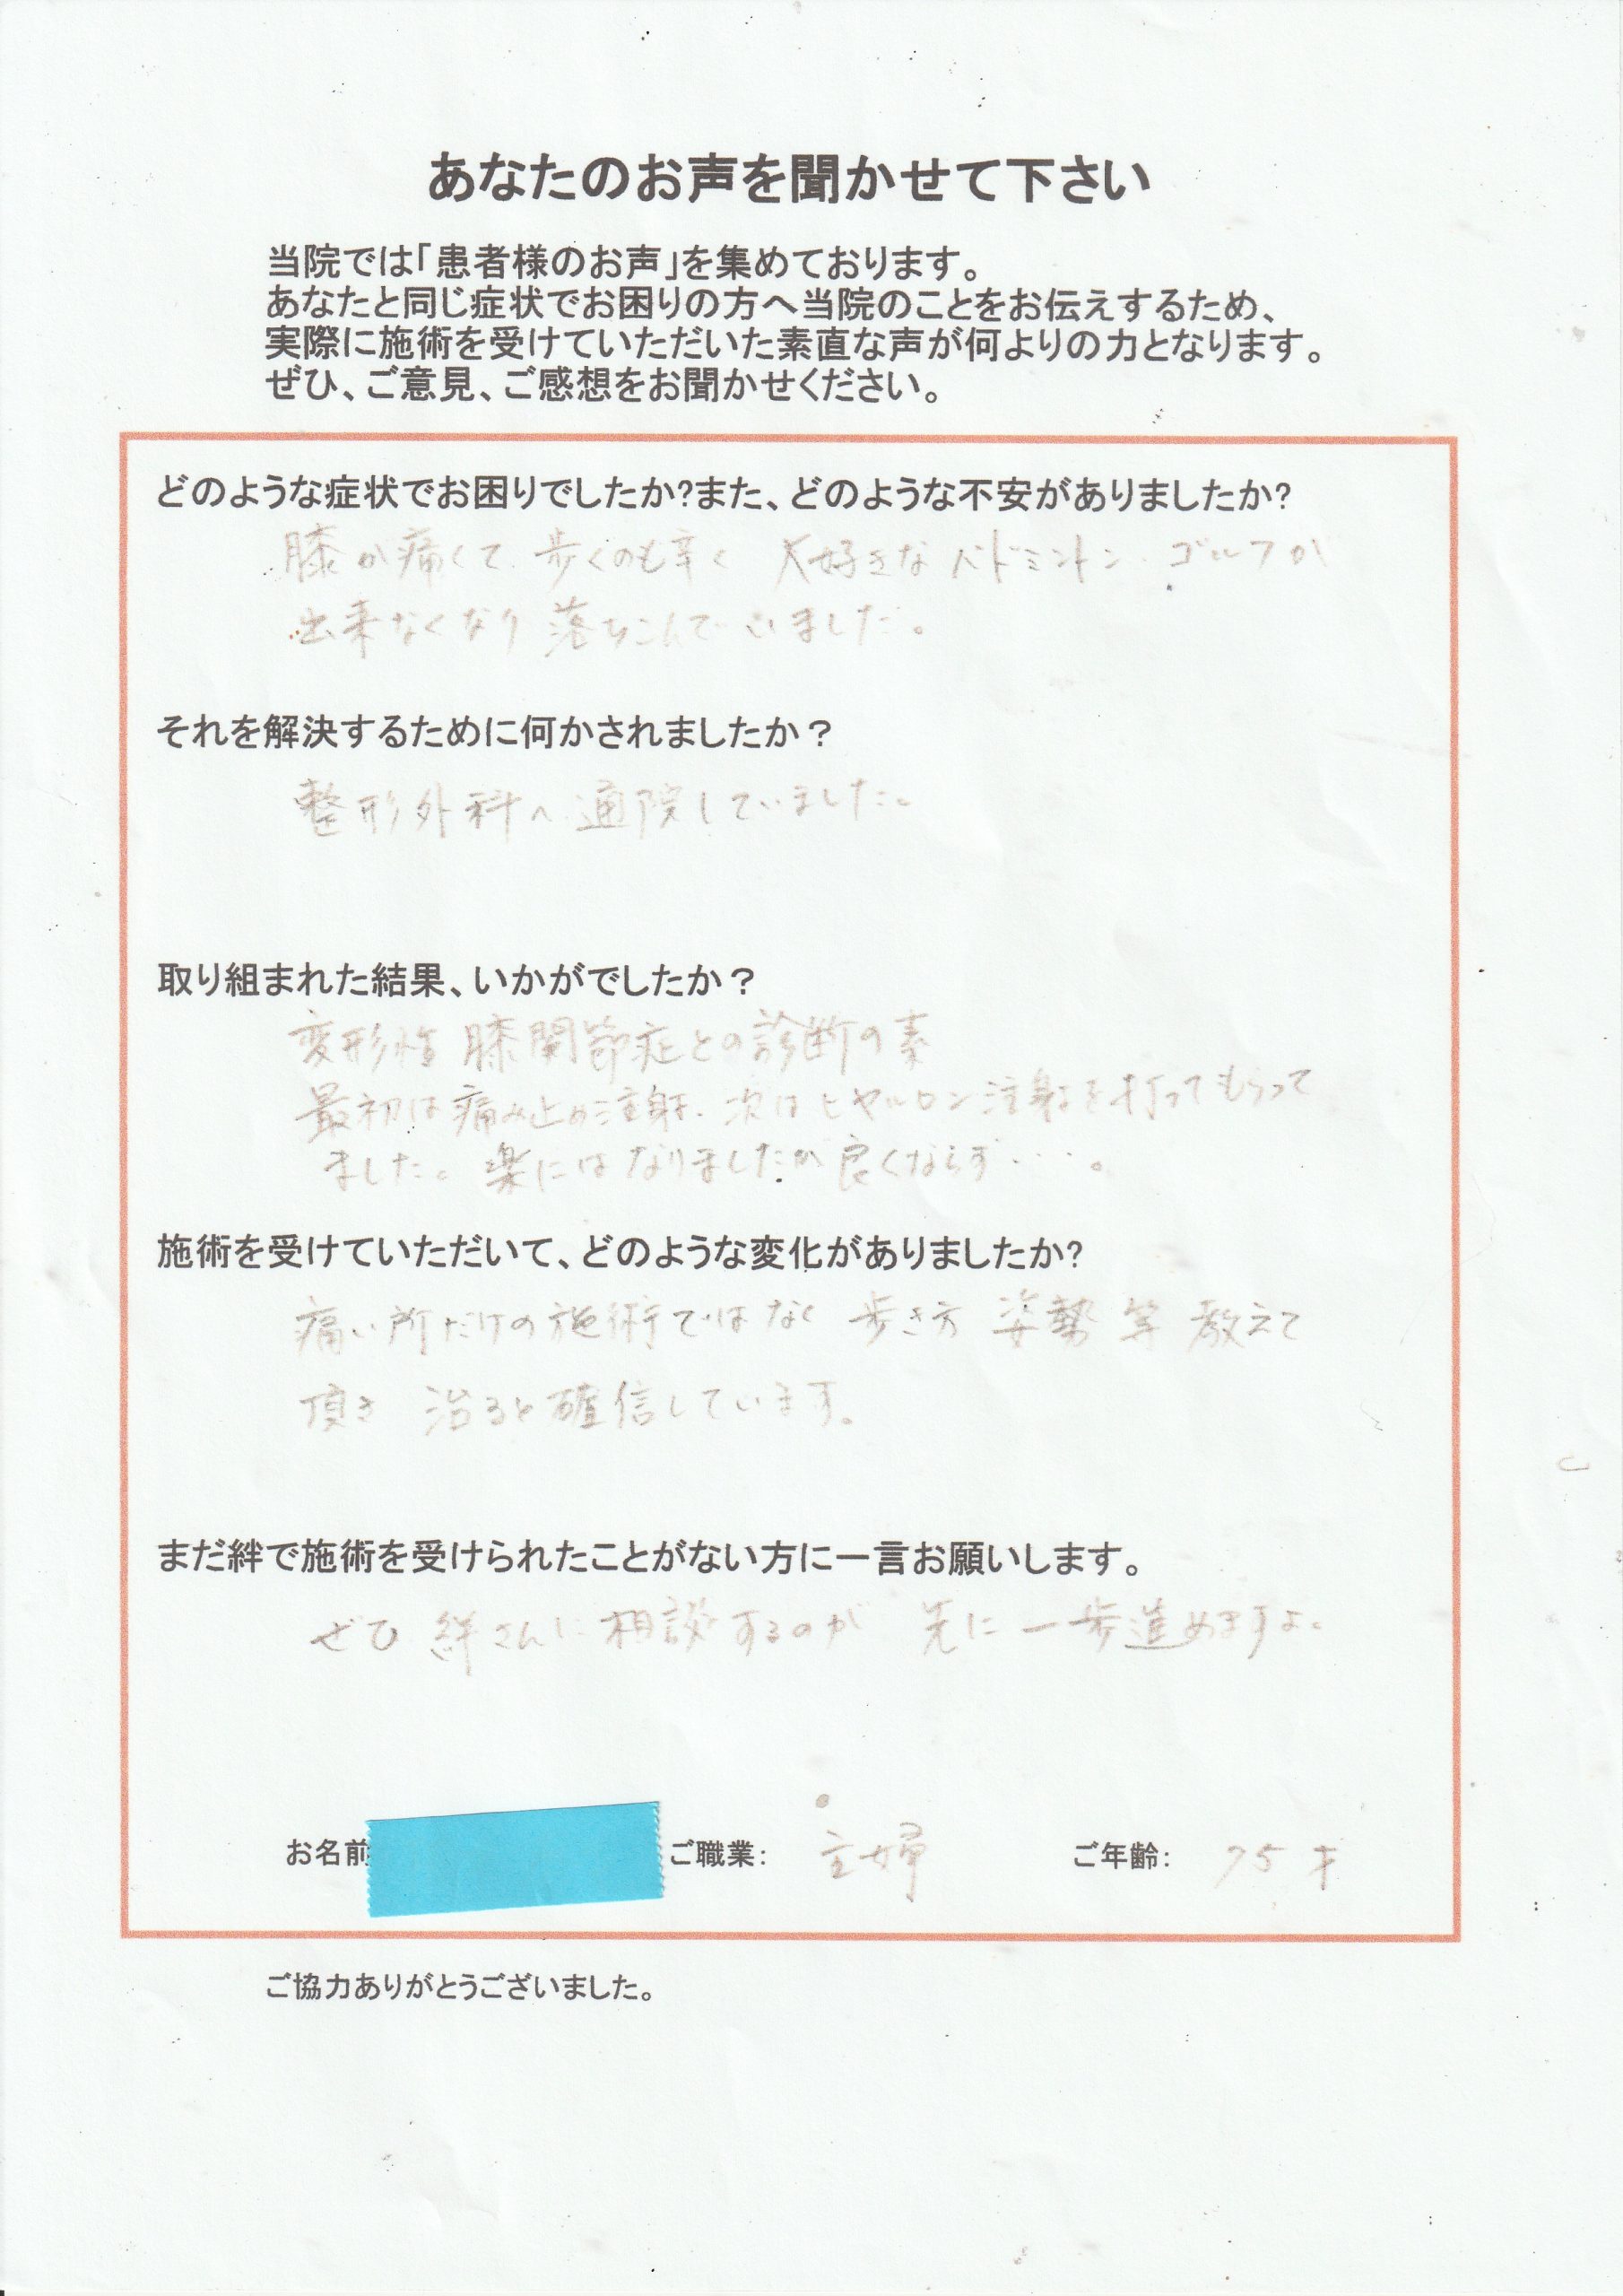 あなたのお声を聞かせて下さい
当院では「患者様のお声」を集めております。
あなたと同じ症状でお困りの方へ当院のことをお伝えするため、
実際に施術を受けていただいた素直な声が何よりの力となります。
ぜひ、ご意見、ご感想をお聞かせください。
どのような症状でお困りでしたか?また、どのような不安がありましたか?
膝が痛くて 歩くのも辛く 大好きなバドミントン、ゴルフが
出来なくなり 落ちこんでいました。
それを解決するために何かされましたか？
整形外科へ通院していました。
取り組まれた結果、いかがでしたか？
変形性膝関節症との診断の素
最初は痛み止の注射、次はヒアルロン注射を打ってもらって
ました。楽にはなりましたが良くならず・・・。
施術を受けていただいて、どのような変化がありましたか?
痛い所だけの施術ではなく 歩き方 姿勢 等 教えて
頂き 治ると確信しています。
まだ絆で施術を受けられたことがない方に一言お願いします。
ぜひ 絆さんに相談するのが 先に一歩進めますよ。
お名前 ご職業: 主婦 ご年齢: 75才
ご協力ありがとうございました。